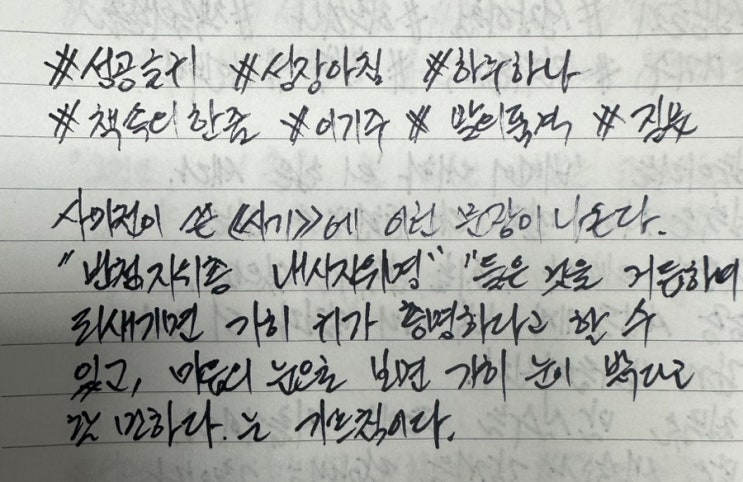 #성공습기 #성장아침 #하루하나
#책속의한줄 #이기주 #말의품격 #질문
사마천이 쓴 《사기》에 이런 문장이 나온다.
"반청지위총 내시지위명" "들은 것을 거듭하여
되새기면 가히 귀가 총명하다고 할 수
있고, 마음의 눈으로 보면 가히 눈이 밝다고
할 만하다. 는 가르침이다.